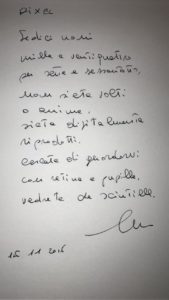 PIXEL
Sedici nomi
mille e ventiquattro
per sette e sessantotto.
Non siete volti
o anime,
siete digitalmente
riprodotti.
Cercate di guardarvi
con retina e pupille,
vedrete scintille.
15 11